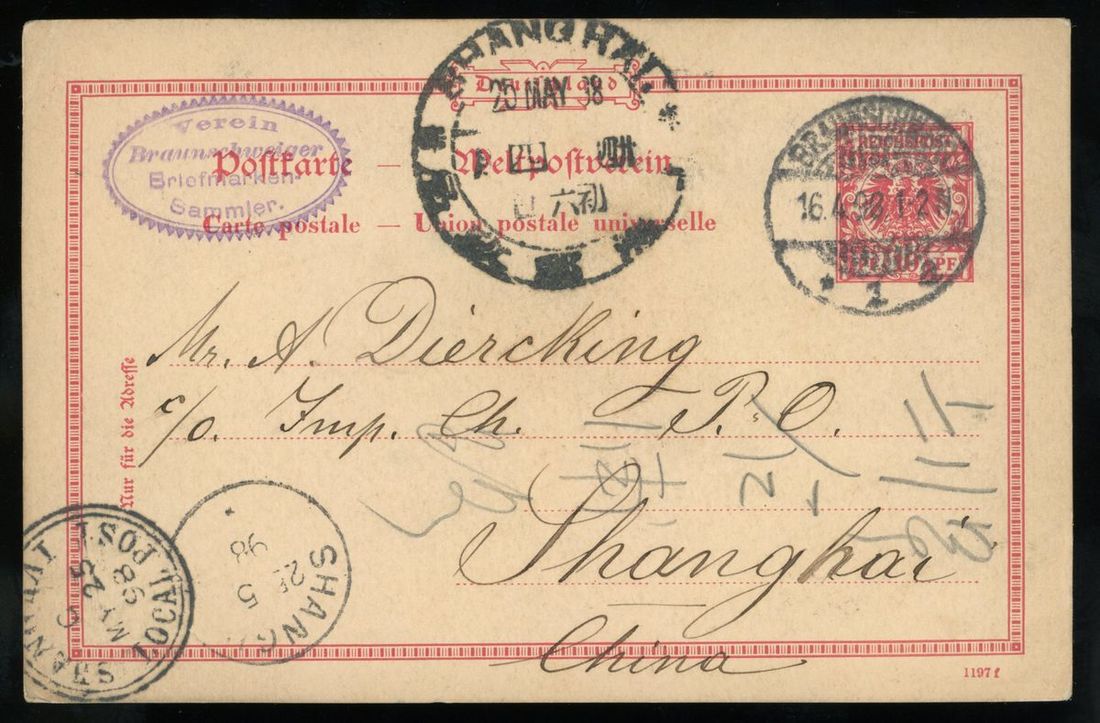 SHANGHAI
25 MAY 98
Deutschland
Verein
Braunschweiger
Briefmarken-
Sammler.
Postkarte — Weltpostverein
Carte postale — Union postale universelle
初六
REICHSPOST
BRAUNSCHWEIG
16.4.98.1-2N.
* 1 a
PF
Mr. A. Diercking
c/o. Imp. Ch. P. O.
Shanghai
China
Nur für die Adresse
SHANG
25
5
98
SHANGHAI LOCAL POST
C
MY 25
98
1197 f